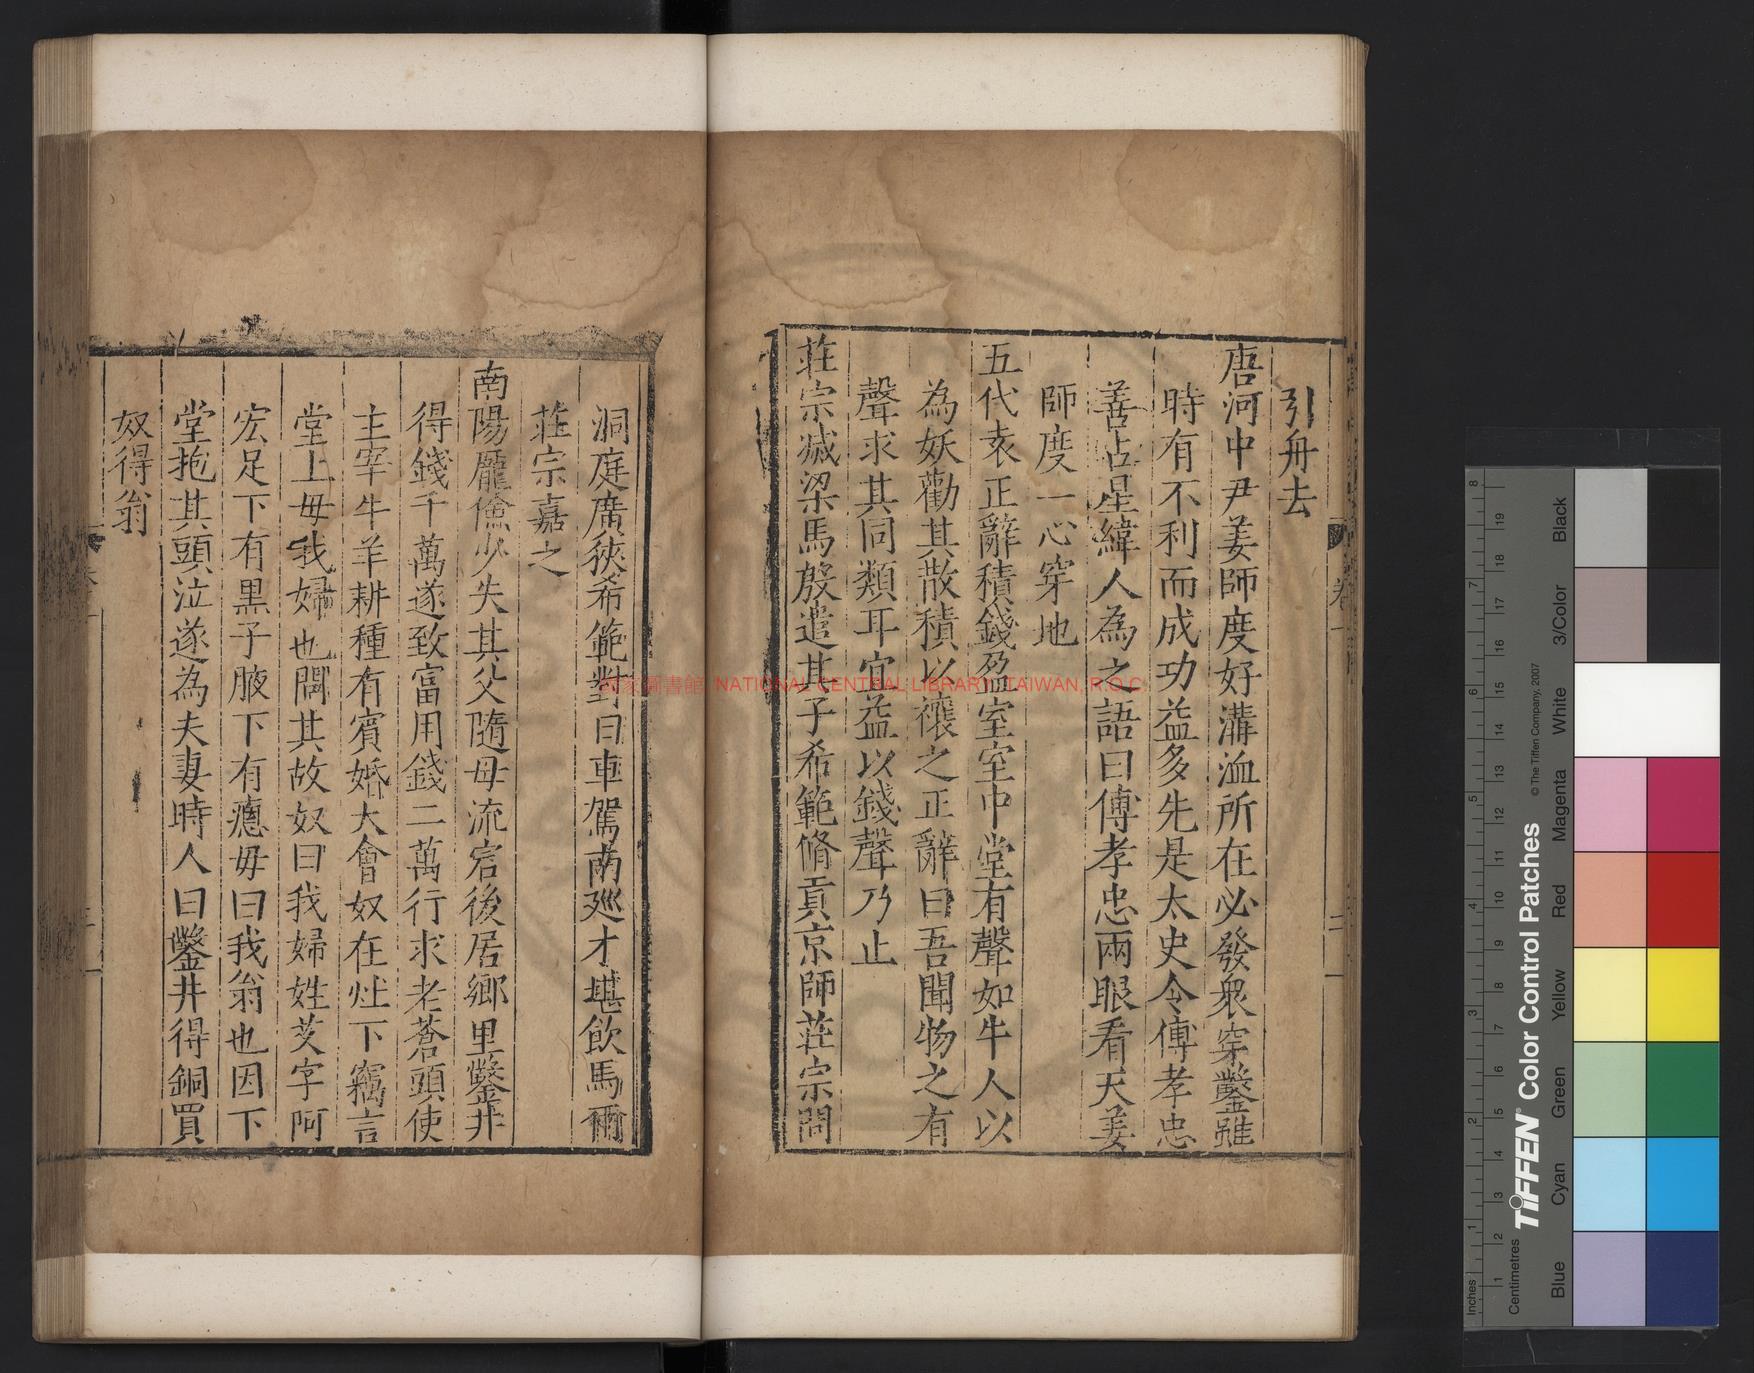 引舟去
唐河中尹姜師度好溝洫所在必發衆穿鑿雖
時有不利而成功益多先是太史令傅孝忠
善占星緯人為之語曰傅孝忠兩眼看天姜
師度一心穿地
五代袁正辭積錢盈室室中堂有聲如牛人以
為妖勸其散積以禳之正辭曰吾聞物之有
聲求其同類耳宜益以錢聲乃止
莊宗滅梁馬殷遣其子希範脩貢京師莊宗問
洞庭廣狹希範對曰車駕南廵才堪飲馬爾
莊宗嘉之
南陽龎儉少失其父隨母流宕後居鄉里鑿井
得錢千萬遂致富用錢二萬行求老蒼頭使
主宰牛羊耕種有賓婚大會奴在灶下竊言
堂上母我婦也問其故奴曰我婦姓艾字阿
宏足下有黒子腋下有瘜母曰我翁也因下
堂抱其頭泣遂為夫妻時人曰鑿井得銅買
奴得翁
國家圖書館 NATIONAL CENTRAL LIBRARY, TAIWAN, R.O.C
卷一
TIFFEN® Color Control Patches
© The Tiffen Company, 2007
Inches
Centimetres
Blue
Cyan
Green
Yellow
Red
Magenta
White
3/Color
Black